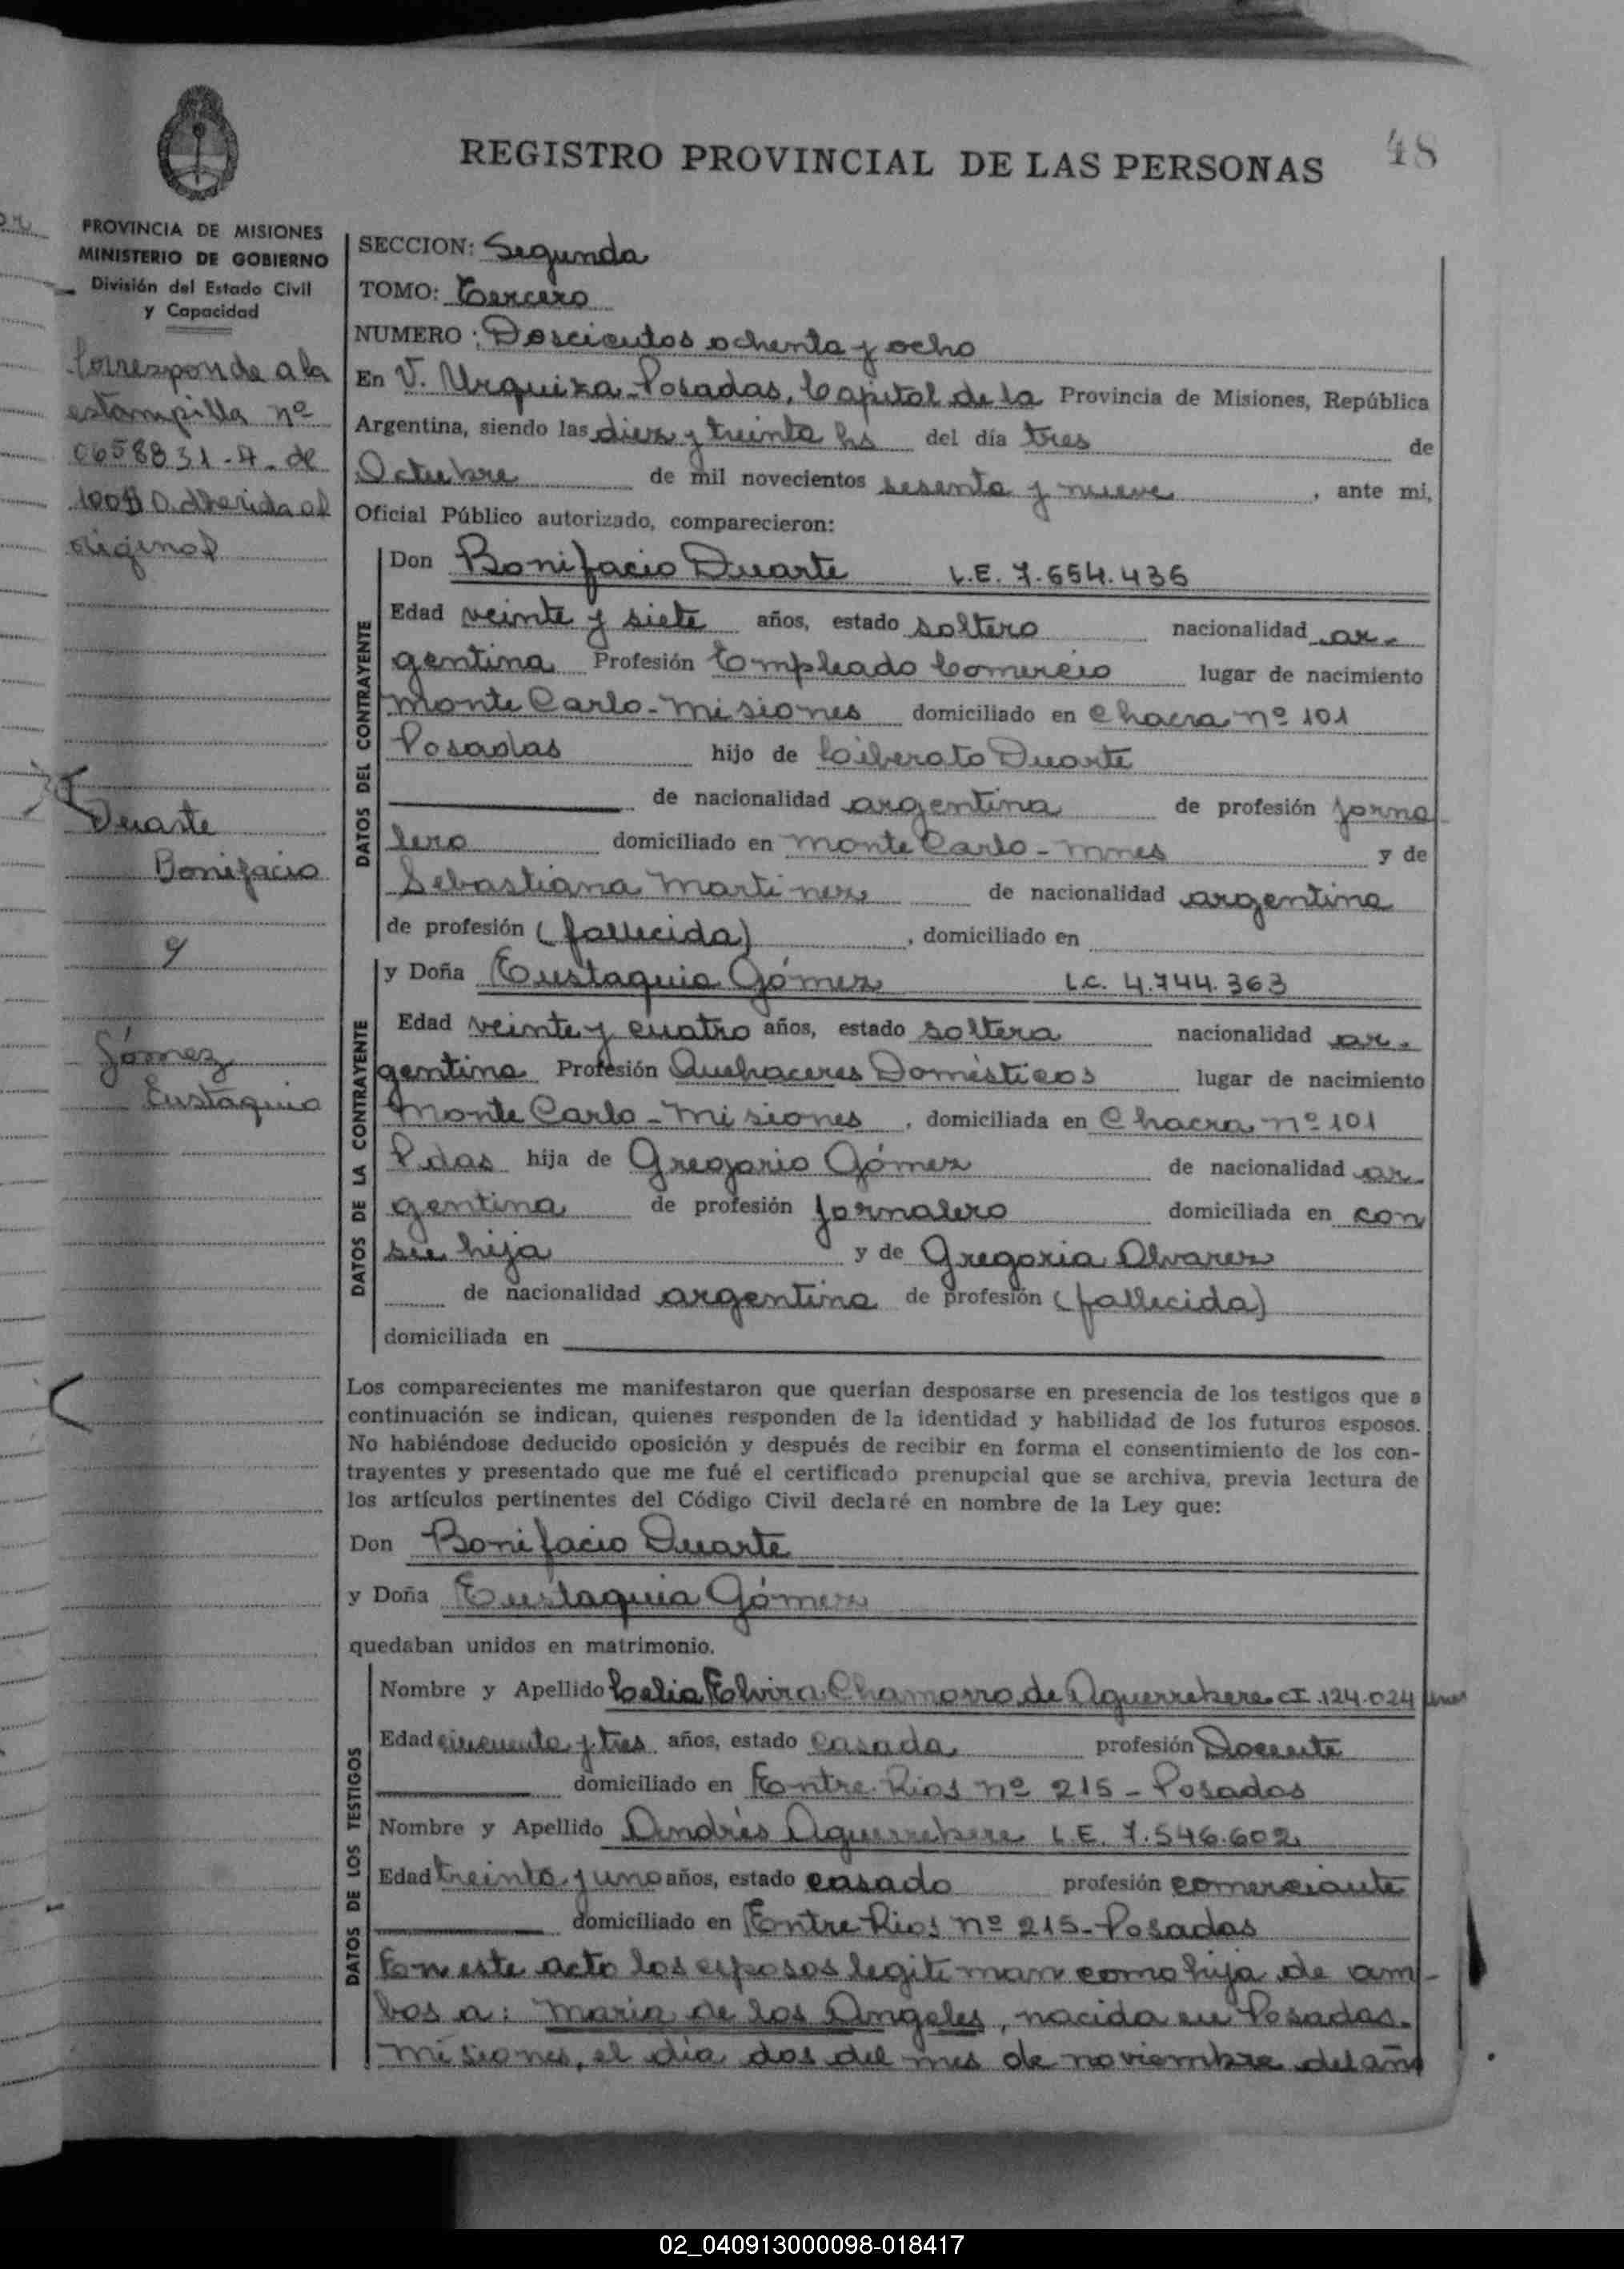 48
REGISTRO PROVINCIAL DE LAS PERSONAS
PROVINCIA DE MISIONES
MINISTERIO DE GOBIERNO
División del Estado Civil
y Capacidad
Corresponde a la
estampilla nº
0658831-A- de
100$ Adherida al
original
Duarte
Bonifacio
y
Gómez
Eustaquia
SECCION: Segunda
TOMO: Tercero
NUMERO: Doscientos ochenta y ocho
En V. Urquiza-Posadas, Capital de la Provincia de Misiones, República
Argentina, siendo las diez y treinta hs del día tres de
Octubre de mil novecientos sesenta y nueve, ante mi,
Oficial Público autorizado, comparecieron:
DATOS DEL CONTRAYENTE
Don Bonifacio Duarte L.E. 7.554.436
Edad veinte y siete años, estado soltero nacionalidad ar-
gentina Profesión Empleado Comercio lugar de nacimiento
Monte Carlo-Misiones domiciliado en Chacra nº 101
Posadas hijo de Liberato Duarte
de nacionalidad argentina de profesión jorna-
lero domiciliado en Monte Carlo-Mnes y de
Sebastiana Martinez de nacionalidad argentina
de profesión (fallecida), domiciliado en
DATOS DE LA CONTRAYENTE
y Doña Eustaquia Gómez L.C. 4.744.363
Edad veinte y cuatro años, estado soltera nacionalidad ar-
gentina Profesión Quehaceres Domésticos lugar de nacimiento
Monte Carlo-Misiones, domiciliada en Chacra nº 101
Pdas hija de Gregorio Gómez de nacionalidad ar-
gentina de profesión Jornalero domiciliada en con
su hija y de Gregoria Alvarez
de nacionalidad argentina de profesión (fallecida)
domiciliada en
Los comparecientes me manifestaron que querían desposarse en presencia de los testigos que a
continuación se indican, quienes responden de la identidad y habilidad de los futuros esposos.
No habiéndose deducido oposición y después de recibir en forma el consentimiento de los con-
trayentes y presentado que me fué el certificado prenupcial que se archiva, previa lectura de
los artículos pertinentes del Código Civil declaré en nombre de la Ley que:
Don Bonifacio Duarte
y Doña Eustaquia Gómez
quedaban unidos en matrimonio.
DATOS DE LOS TESTIGOS
Nombre y Apellido Celia Elvira Chamorro de Aguerrebere CI.124.024
Edad cincuenta y tres años, estado casada profesión Docente
domiciliado en Entre Rios nº 215-Posadas
Nombre y Apellido Andrés Aguerrebere L.E. 7.546.602
Edad treinta y uno años, estado casado profesión comerciante
domiciliado en Entre Rios nº 215-Posadas
En este acto los esposos legitiman como hija de am-
bos a: María de los Angeles, nacida en Posadas-
Misiones, el día dos del mes de noviembre del año
02_040913000098-018417